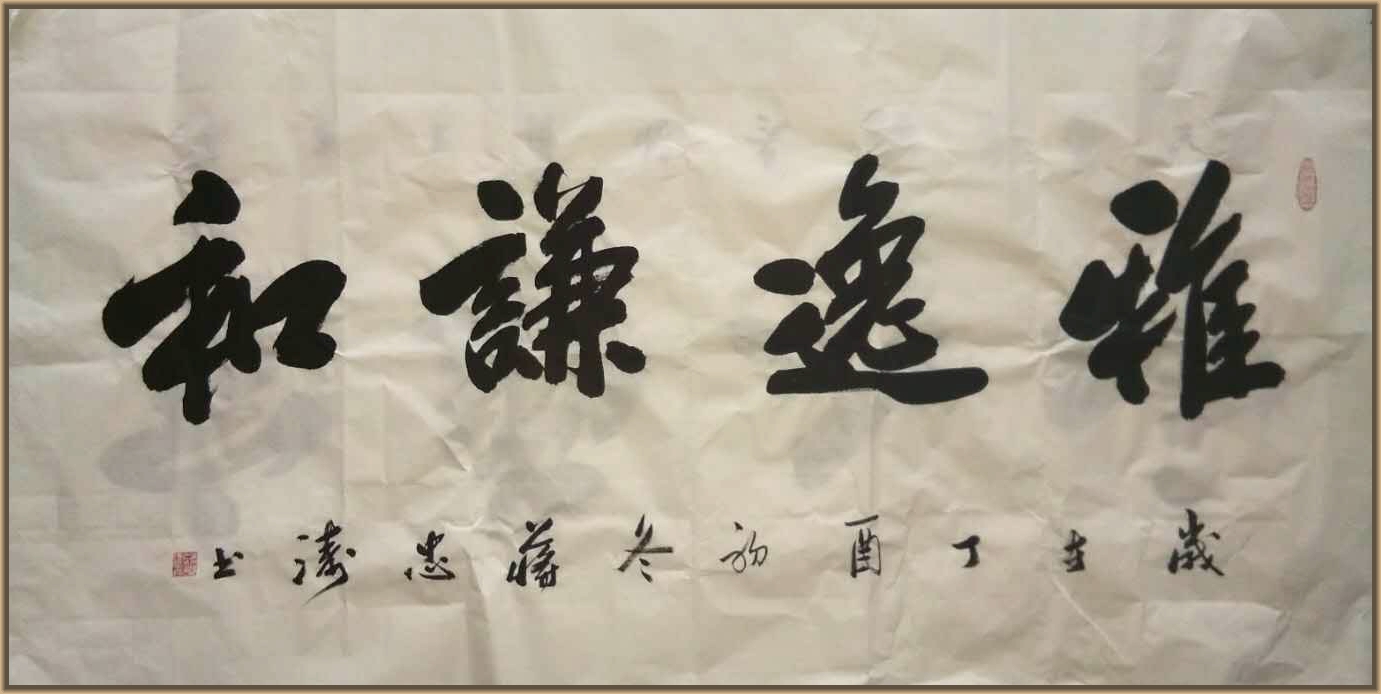 雅逸謙和
歲在丁酉初冬蔣忠濤书